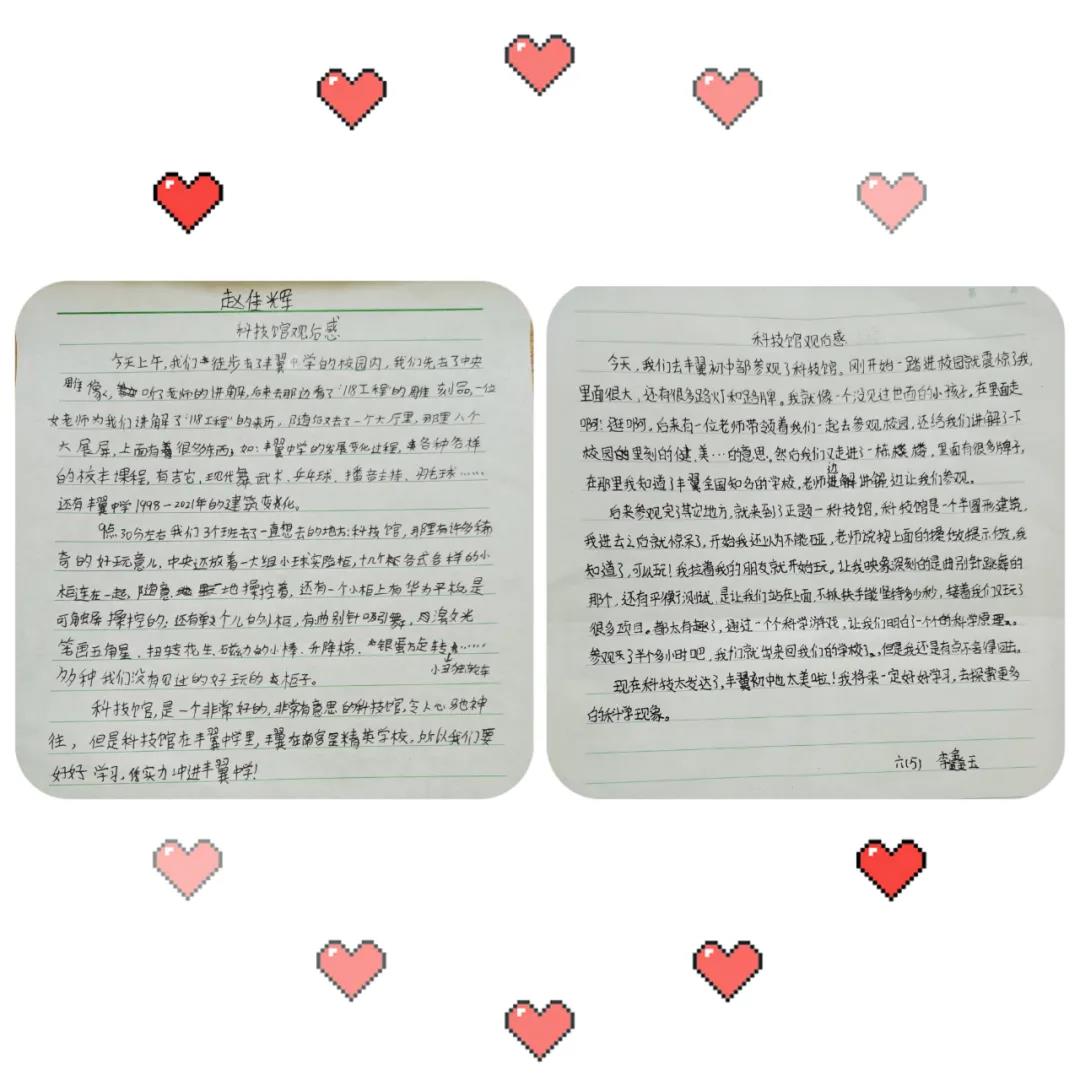 赵佳辉
科技馆观后感
今天上午,我们徒步去了丰翼中学的校园内,我们先去了中央
雕像,听了老师的讲解,后来去那边看了"118工程"的雕刻品,一位
女老师为我们讲解了"118工程"的来历,随后又去了一个大厅里,那里八个
大展屏,上面有着很多东西,如:丰翼中学的发展变化过程,各种各样
的校本课程,有吉它,现代舞,武术,乒乓球,播音主持,羽毛球……
还有丰翼中学1998-2021年的建筑变化。
9点30分左右我们3个班去了一直想去的地方:科技馆,那里有许多稀
奇的好玩意儿,中央还放着一大组小球实验柜,十几个柜各式各样的小
柜连在一起,随意地操控着,还有一个小柜上有华为平板,是
可触屏操控的,还有单个儿的小柜,有曲别针吸引舞,月滚久光
笔画五角星、扭转花生、磁力的小棒、升降梯、银蛋旋转……
小球独轮车
多种我们没有见过的好玩的柜子。
科技馆,是一个非常好的,非常有意思的科技馆,令人心驰神
往,但是科技馆在丰翼中学里,丰翼在南宫是精英学校,所以我们要
好好学习,凭实力冲进丰翼中学!
科技馆观后感
今天,我们去丰翼初中部参观了科技馆。刚开始一踏进校园就震惊了我,
里面很大,还有很多路灯和路牌。我就像一个没见过世面的小孩子,在里面走
啊!逛啊,后来有一位老师带领着我们一起去参观校园,还给我们讲解了一下
校园的里刻的健、美…的意思。然后我们又走进了一栋楼,里面有很多牌子,
在那里我知道了丰翼全国知名的学校,老师边讲解边让我们参观。
后来参观完了其它地方,就来到了正题—科技馆,科技馆是一个半圆形建筑,
我进去之后就惊呆了,开始我还以为不能碰,老师说按上面的操做提示做,我
知道了,可以玩!我拉着我的朋友就开始玩。让我映象深刻的是曲别针跳舞的
那个,还有平横测试,是让我们站在上面,不抓扶手能坚持多少秒,接着我们又玩了
很多项目。都太有趣了,通过一个个科学游戏,让我们明白一个个的科学原理。
参观了半个多小时吧,我们就出来回我们的学校了。但是我还是有点不舍得回去。
现在科技太发达了,丰翼初中也太美啦!我将来一定好好学习,去探索更多
的科学现象。
六(5) 李鑫玉